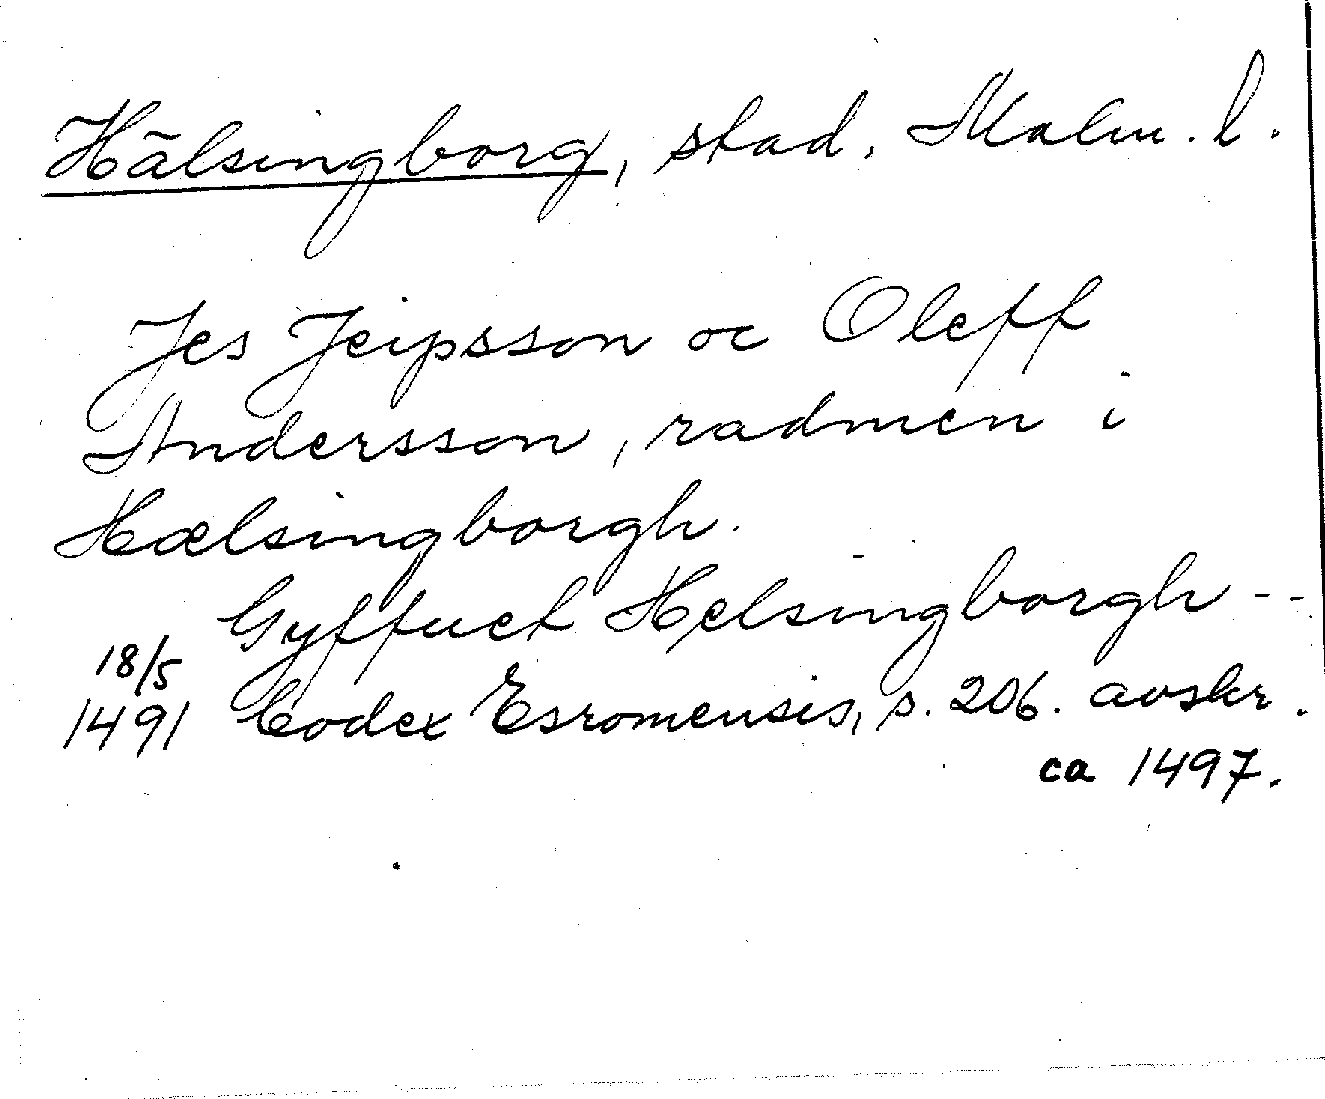 Hälsingborg, stad, Malm. l.
Jes Jeipsson oc Oleff
Andersson, radmen i
Hælsingborgh.
Gyffuet Helsingborgh --
18/5
1491 Codex Esromensis, s. 206. avskr.
ca 1497.